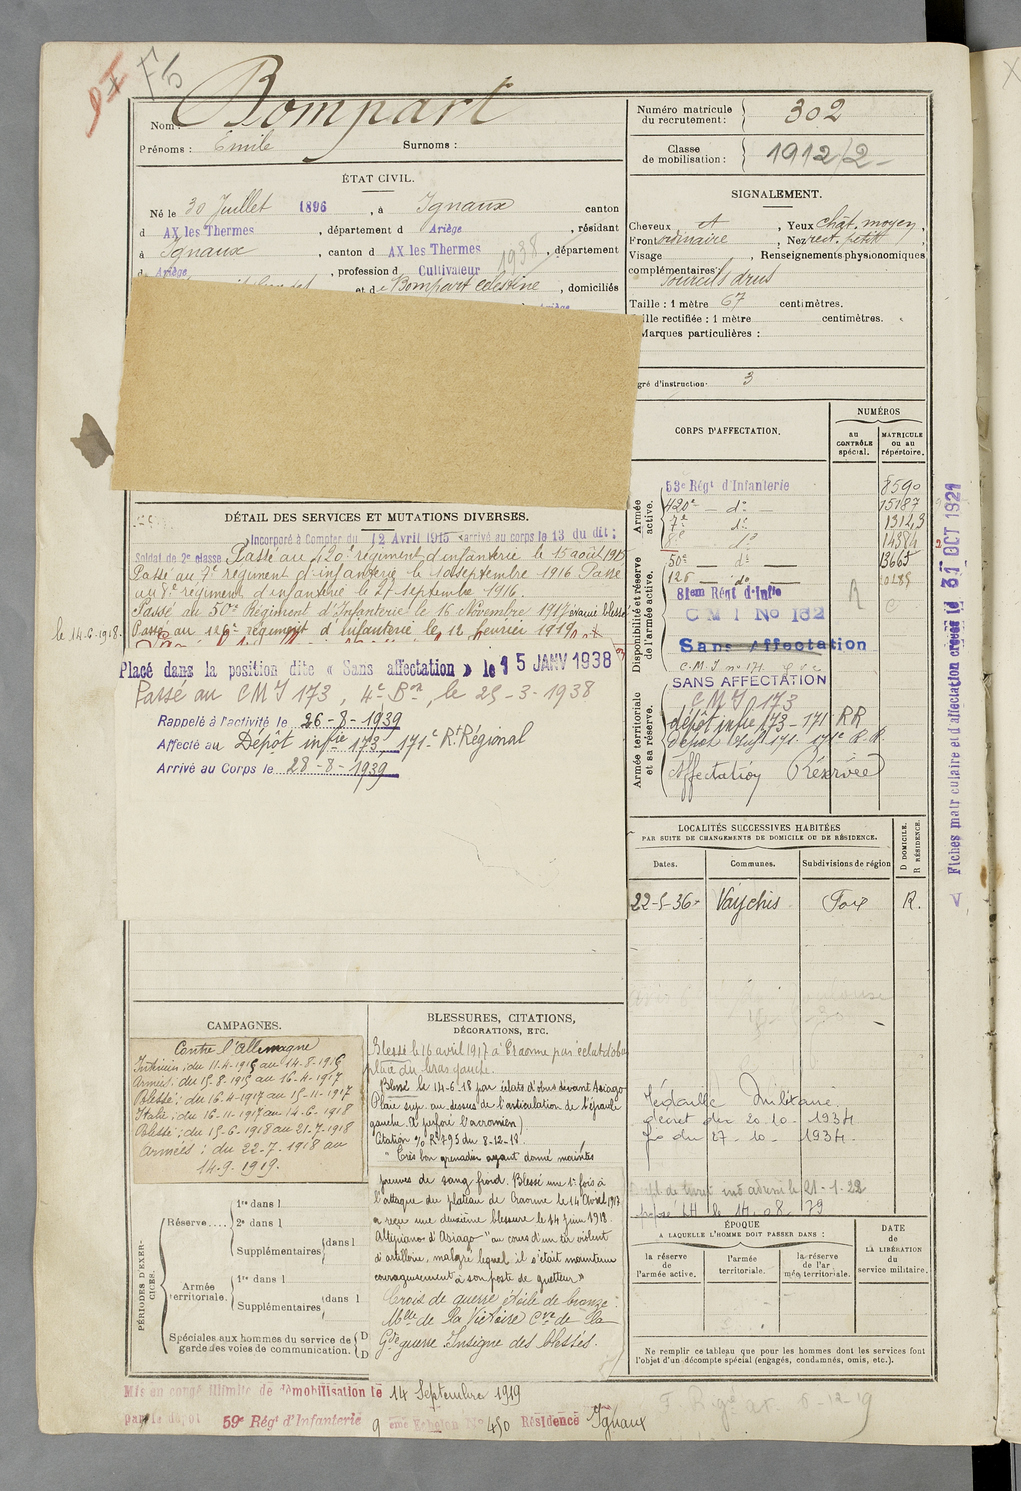 F5
Nom : Bompart
Prénoms : Emile Surnoms :
ÉTAT CIVIL.
Né le 30 Juillet 1896, à Ignaux canton
d AX les Thermes, département d Ariège, résidant
à Ignaux, canton d AX les Thermes, département
d Ariège, profession d Cultivateur
1938
et de Bompart Célestine, domiciliés
Numéro matricule du recrutement : 302
Classe de mobilisation : 1912/2
SIGNALEMENT.
Cheveux, Yeux chât. moyen,
Front ordinaire, Nez rect. petit
Visage, Renseignements physionomiques
complémentaires :
Sourcils drus
Taille : 1 mètre 67 centimètres.
Taille rectifiée : 1 mètre centimètres.
Marques particulières :
gré d'instruction. 3
CORPS D'AFFECTATION.
NUMÉROS
au CONTRÔLE spécial.
MATRICULE ou au répertoire.
Armée active.
53e Régt d'Infanterie 8590
420e — do — 15187
7e do 13143
8e do 14384
Disponibilité et réserve de l'armée active.
50e — do — 13665
126 — do —
81em Rént d'Infie
C M I No 162
Sans Affectation
C.M.I no 171
SANS AFFECTATION
Armée territoriale et sa réserve.
CMI 173
dépôt infie 173 - 171 RR
Affectation Réservée
DÉTAIL DES SERVICES ET MUTATIONS DIVERSES.
Incorporé à Compter du 12 Avril 1915 arrivé au corps le 13 du dit :
Soldat de 2e classe Passé au 420e régiment d'infanterie le 15 août 1915
Passé au 7e régiment d'infanterie le 10 septembre 1916 Passé
au 8e régiment d'infanterie le 27 septembre 1916.
Passé au 50e Régiment d'Infanterie le 16 Novembre 1917 évacué blessé
le 14-6-1918. Passé au 126e régiment d'infanterie le 12 février 1919
Placé dans la position dite « Sans affectation » le 15 JANV 1938
Passé au CMI 173, 4e Bon, le 25-3-1938
Rappelé à l'activité le 26-8-1939
Affecté au Dépôt infie 173, 171e Rt Régional
Arrivé au Corps le 28-8-1939
LOCALITÉS SUCCESSIVES HABITÉES
PAR SUITE DE CHANGEMENTS DE DOMICILE OU DE RÉSIDENCE.
Dates. Communes. Subdivisions de région D DOMICILE. R RÉSIDENCE.
22-5-36 Vaychis Foix R.
Fiches matriculaire et d'affectation créées le 31 OCT 1921
CAMPAGNES.
Contre l'Allemagne
Intérieur, du 11-4-1915 au 14-8-1915
Armées, du 15-8-1915 au 16-4-1917
Blessé ; du 16-4-1917 au 15-11-1917
Italie ; du 16-11-1917 au 14-6-1918
Blessé ; du 15-6-1918 au 21-7-1918
Armées : du 22-7-1918 au
14-9-1919.
BLESSURES, CITATIONS,
DÉCORATIONS, ETC.
Blessé le 16 avril 1917 à Craonne par éclat d'obus
plaie du bras gauche.
Blessé le 14-6-18 par éclats d'obus devant Asiago
Plaie sup. au dessus de l'articulation de l'épaule
gauche. (a perforé l'acromion).
Citation o/ Rt 795 du 8-12-18.
" Très bon grenadier ayant donné maintes
preuves de sang froid. Blessé une 1re fois à
l'attaque du plateau de Craonne le 14 Avril 1917
a reçu une deuxième blessure le 14 juin 1918.
Altipiano d'Asiago " au cours d'un tir violent
d'artillerie, malgré lequel il s'était maintenu
courageusement à son poste de guetteur »
Croix de guerre étoile de bronze.
Mlle de la Victoire Cve de la
Gde guerre Insigne des blessés.
Médaille Militaire.
décret du 20-10-1934
Jo du 27-10-1934
PÉRIODES D'EXERCICES.
Réserve.... 1re dans l
2e dans l
Supplémentaires dans l
Armée territoriale. 1re dans l
Supplémentaires dans l
Spéciales aux hommes du service de garde des voies de communication. D D
ÉPOQUE
A LAQUELLE L'HOMME DOIT PASSER DANS :
la réserve de l'armée active.
l'armée territoriale.
la réserve de l'armée territoriale.
DATE DE LA LIBÉRATION du service militaire.
Ne remplir ce tableau que pour les hommes dont les services font
l'objet d'un décompte spécial (engagés, condamnés, omis, etc.).
Mis au congé illimité de démobilisation le 14 Septembre 1919
par le dépôt 59e Régt d'Infanterie 9 ème Echelon No 450 Résidence Ignaux